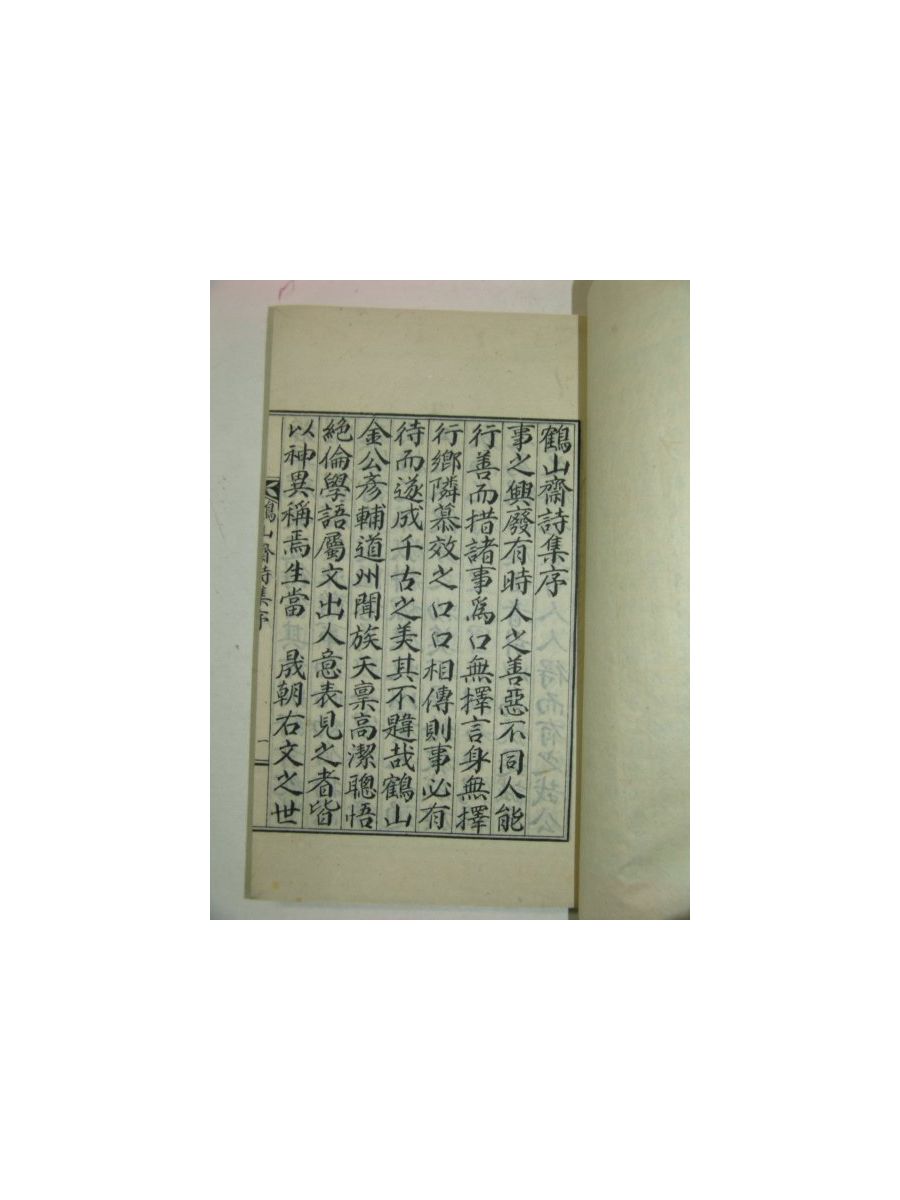 鶴山齋詩集序
事之興廢有時人之善惡不同人能
行善而措諸事爲口無擇言身無擇
行鄉隣慕效之口口相傳則事必有
待而遂成千古之美其不韙哉鶴山
金公彥輔道州聞族天稟高潔聰悟
絶倫學語屬文出人意表見之者皆
以神異稱焉生當 晟朝右文之世
鶴山齋詩集序 一